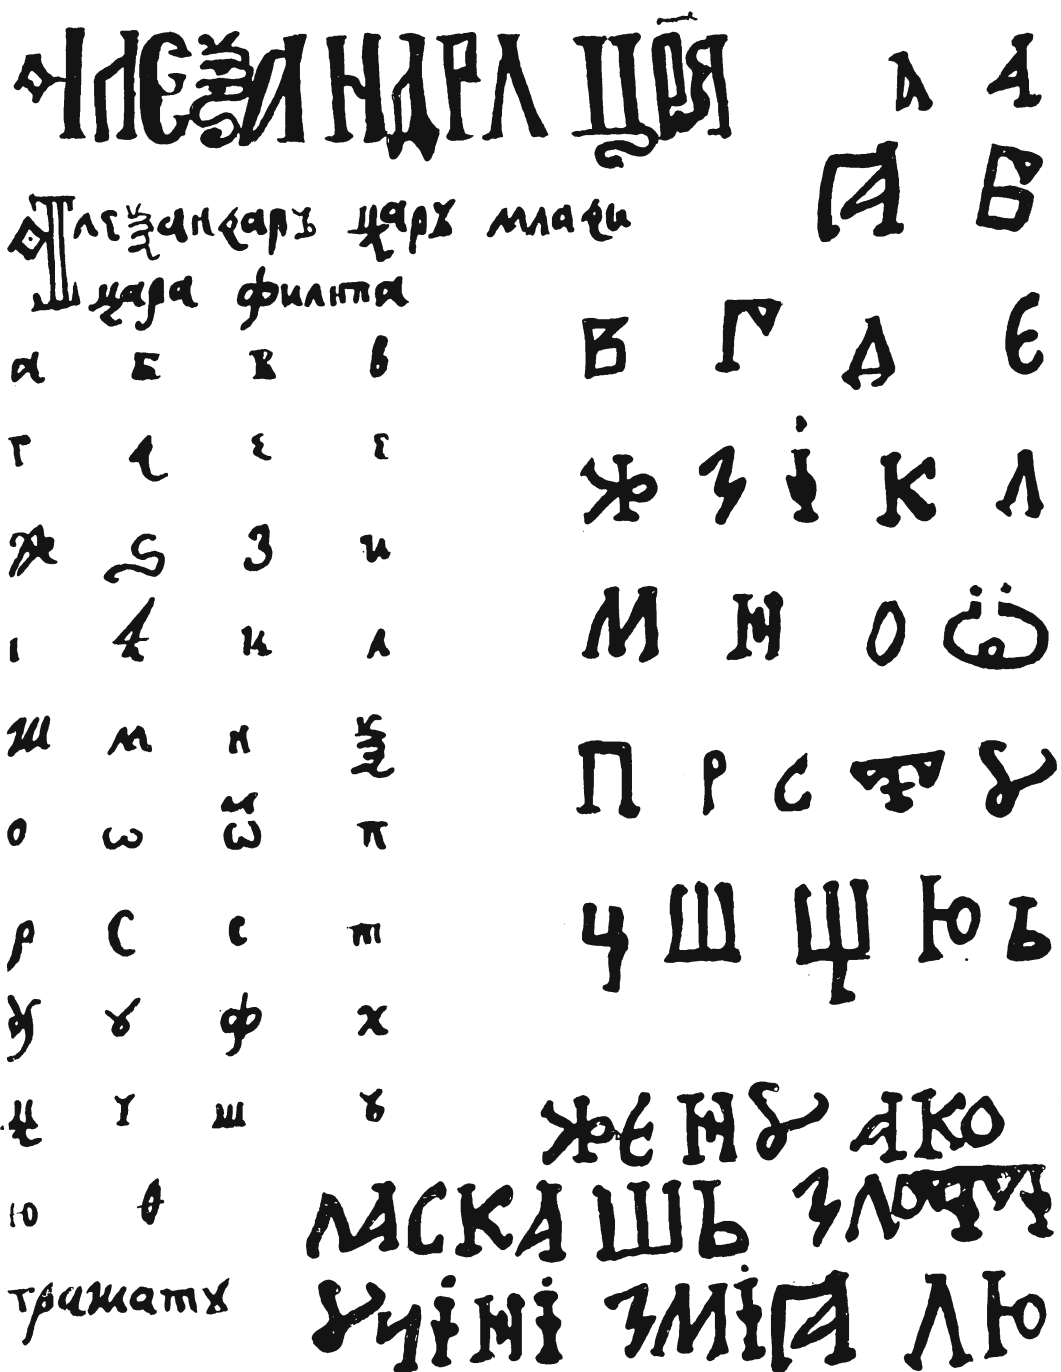 АЛЕѮАНДРА ЦР҃Я
Алеѯандаръ царꙋ млади
цара филипа
а б в в
г д є є
ж ѕ з и
і к л
ш м н ѯ
о ѡ ѿ п
р с с т
ꙋ ф х
ц ш
ю ѳ
тражатꙋ
А А
Ꙗ Б
В Г Д Є
Ж З І К Л
М Н О
П Р С Т Ꙋ
Ч Ш Щ Ю Ь
ЖЄНꙊ АКО
ЛАСКАШЬ
ꙊЧІНІ ЗМІꙖ ЛЮ